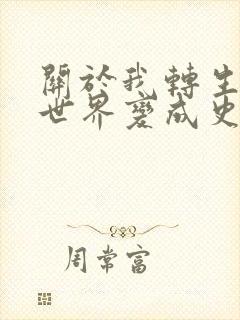 關於我轉生
世界變成史
周常富